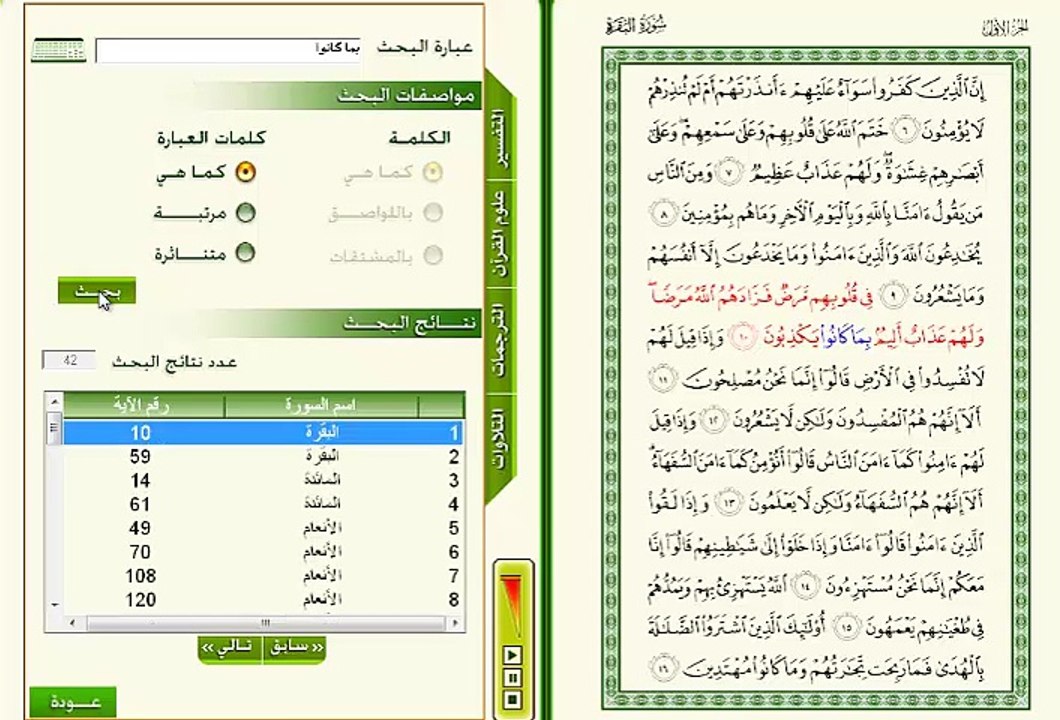 الجزء الأول
سُورَةُ البَقَرَةِ
إِنَّ ٱلَّذِينَ كَفَرُوا۟ سَوَآءٌ عَلَيْهِمْ ءَأَنذَرْتَهُمْ أَمْ لَمْ تُنذِرْهُمْ
لَا يُؤْمِنُونَ ٦ خَتَمَ ٱللَّهُ عَلَىٰ قُلُوبِهِمْ وَعَلَىٰ سَمْعِهِمْ ۖ وَعَلَىٰٓ
أَبْصَٰرِهِمْ غِشَٰوَةٌ ۖ وَلَهُمْ عَذَابٌ عَظِيمٌ ٧ وَمِنَ ٱلنَّاسِ
مَن يَقُولُ ءَامَنَّا بِٱللَّهِ وَبِٱلْيَوْمِ ٱلْءَاخِرِ وَمَا هُم بِمُؤْمِنِينَ ٨
يُخَٰدِعُونَ ٱللَّهَ وَٱلَّذِينَ ءَامَنُوا۟ وَمَا يَخْدَعُونَ إِلَّآ أَنفُسَهُمْ
وَمَا يَشْعُرُونَ ٩ فِى قُلُوبِهِم مَّرَضٌ فَزَادَهُمُ ٱللَّهُ مَرَضًا ۖ
وَلَهُمْ عَذَابٌ أَلِيمٌۢ بِمَا كَانُوا۟ يَكْذِبُونَ ١٠ وَإِذَا قِيلَ لَهُمْ
لَا تُفْسِدُوا۟ فِى ٱلْأَرْضِ قَالُوٓا۟ إِنَّمَا نَحْنُ مُصْلِحُونَ ١١
أَلَآ إِنَّهُمْ هُمُ ٱلْمُفْسِدُونَ وَلَٰكِن لَّا يَشْعُرُونَ ١٢ وَإِذَا قِيلَ
لَهُمْ ءَامِنُوا۟ كَمَآ ءَامَنَ ٱلنَّاسُ قَالُوٓا۟ أَنُؤْمِنُ كَمَآ ءَامَنَ ٱلسُّفَهَآءُ ۗ
أَلَآ إِنَّهُمْ هُمُ ٱلسُّفَهَآءُ وَلَٰكِن لَّا يَعْلَمُونَ ١٣ وَإِذَا لَقُوا۟
ٱلَّذِينَ ءَامَنُوا۟ قَالُوٓا۟ ءَامَنَّا وَإِذَا خَلَوْا۟ إِلَىٰ شَيَٰطِينِهِمْ قَالُوٓا۟ إِنَّا
مَعَكُمْ إِنَّمَا نَحْنُ مُسْتَهْزِءُونَ ١٤ ٱللَّهُ يَسْتَهْزِئُ بِهِمْ وَيَمُدُّهُمْ
فِى طُغْيَٰنِهِمْ يَعْمَهُونَ ١٥ أُو۟لَٰٓئِكَ ٱلَّذِينَ ٱشْتَرَوُا۟ ٱلضَّلَٰلَةَ
بِٱلْهُدَىٰ فَمَا رَبِحَت تِّجَٰرَتُهُمْ وَمَا كَانُوا۟ مُهْتَدِينَ ١٦
التفسير
علوم القرآن
الترجمات
التلاوات
عبارة البحث بما كانوا
مواصفات البحث
الكلمة كلمات العبارة
كما هي كما هي
باللواصق مرتبة
بالمشتقات متناثرة
بحث
نتائج البحث
عدد نتائج البحث 42
اسم السورة رقم الآية
1 البقرة 10
2 البقرة 59
3 المائدة 14
4 المائدة 61
5 الأنعام 49
6 الأنعام 70
7 الأنعام 108
8 الأنعام 120
« سابق تالي »
عودة